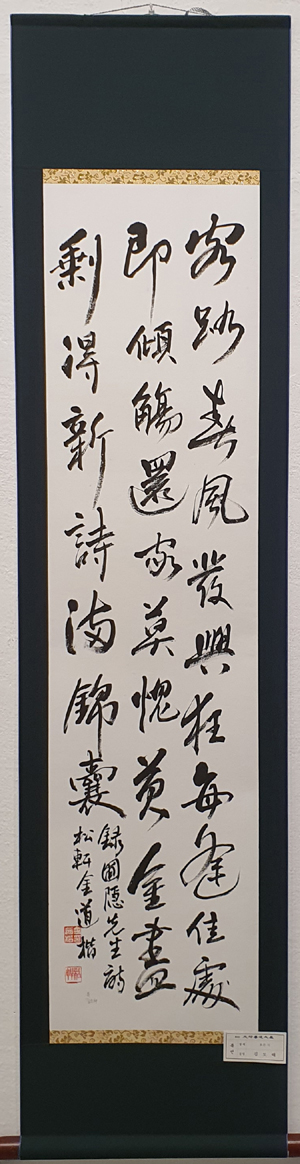 客路春風發興狂每逢佳處
即傾觴還家莫愧黃金盡
剩得新詩滿錦囊
錄圃隱先生詩
松軒金道楷